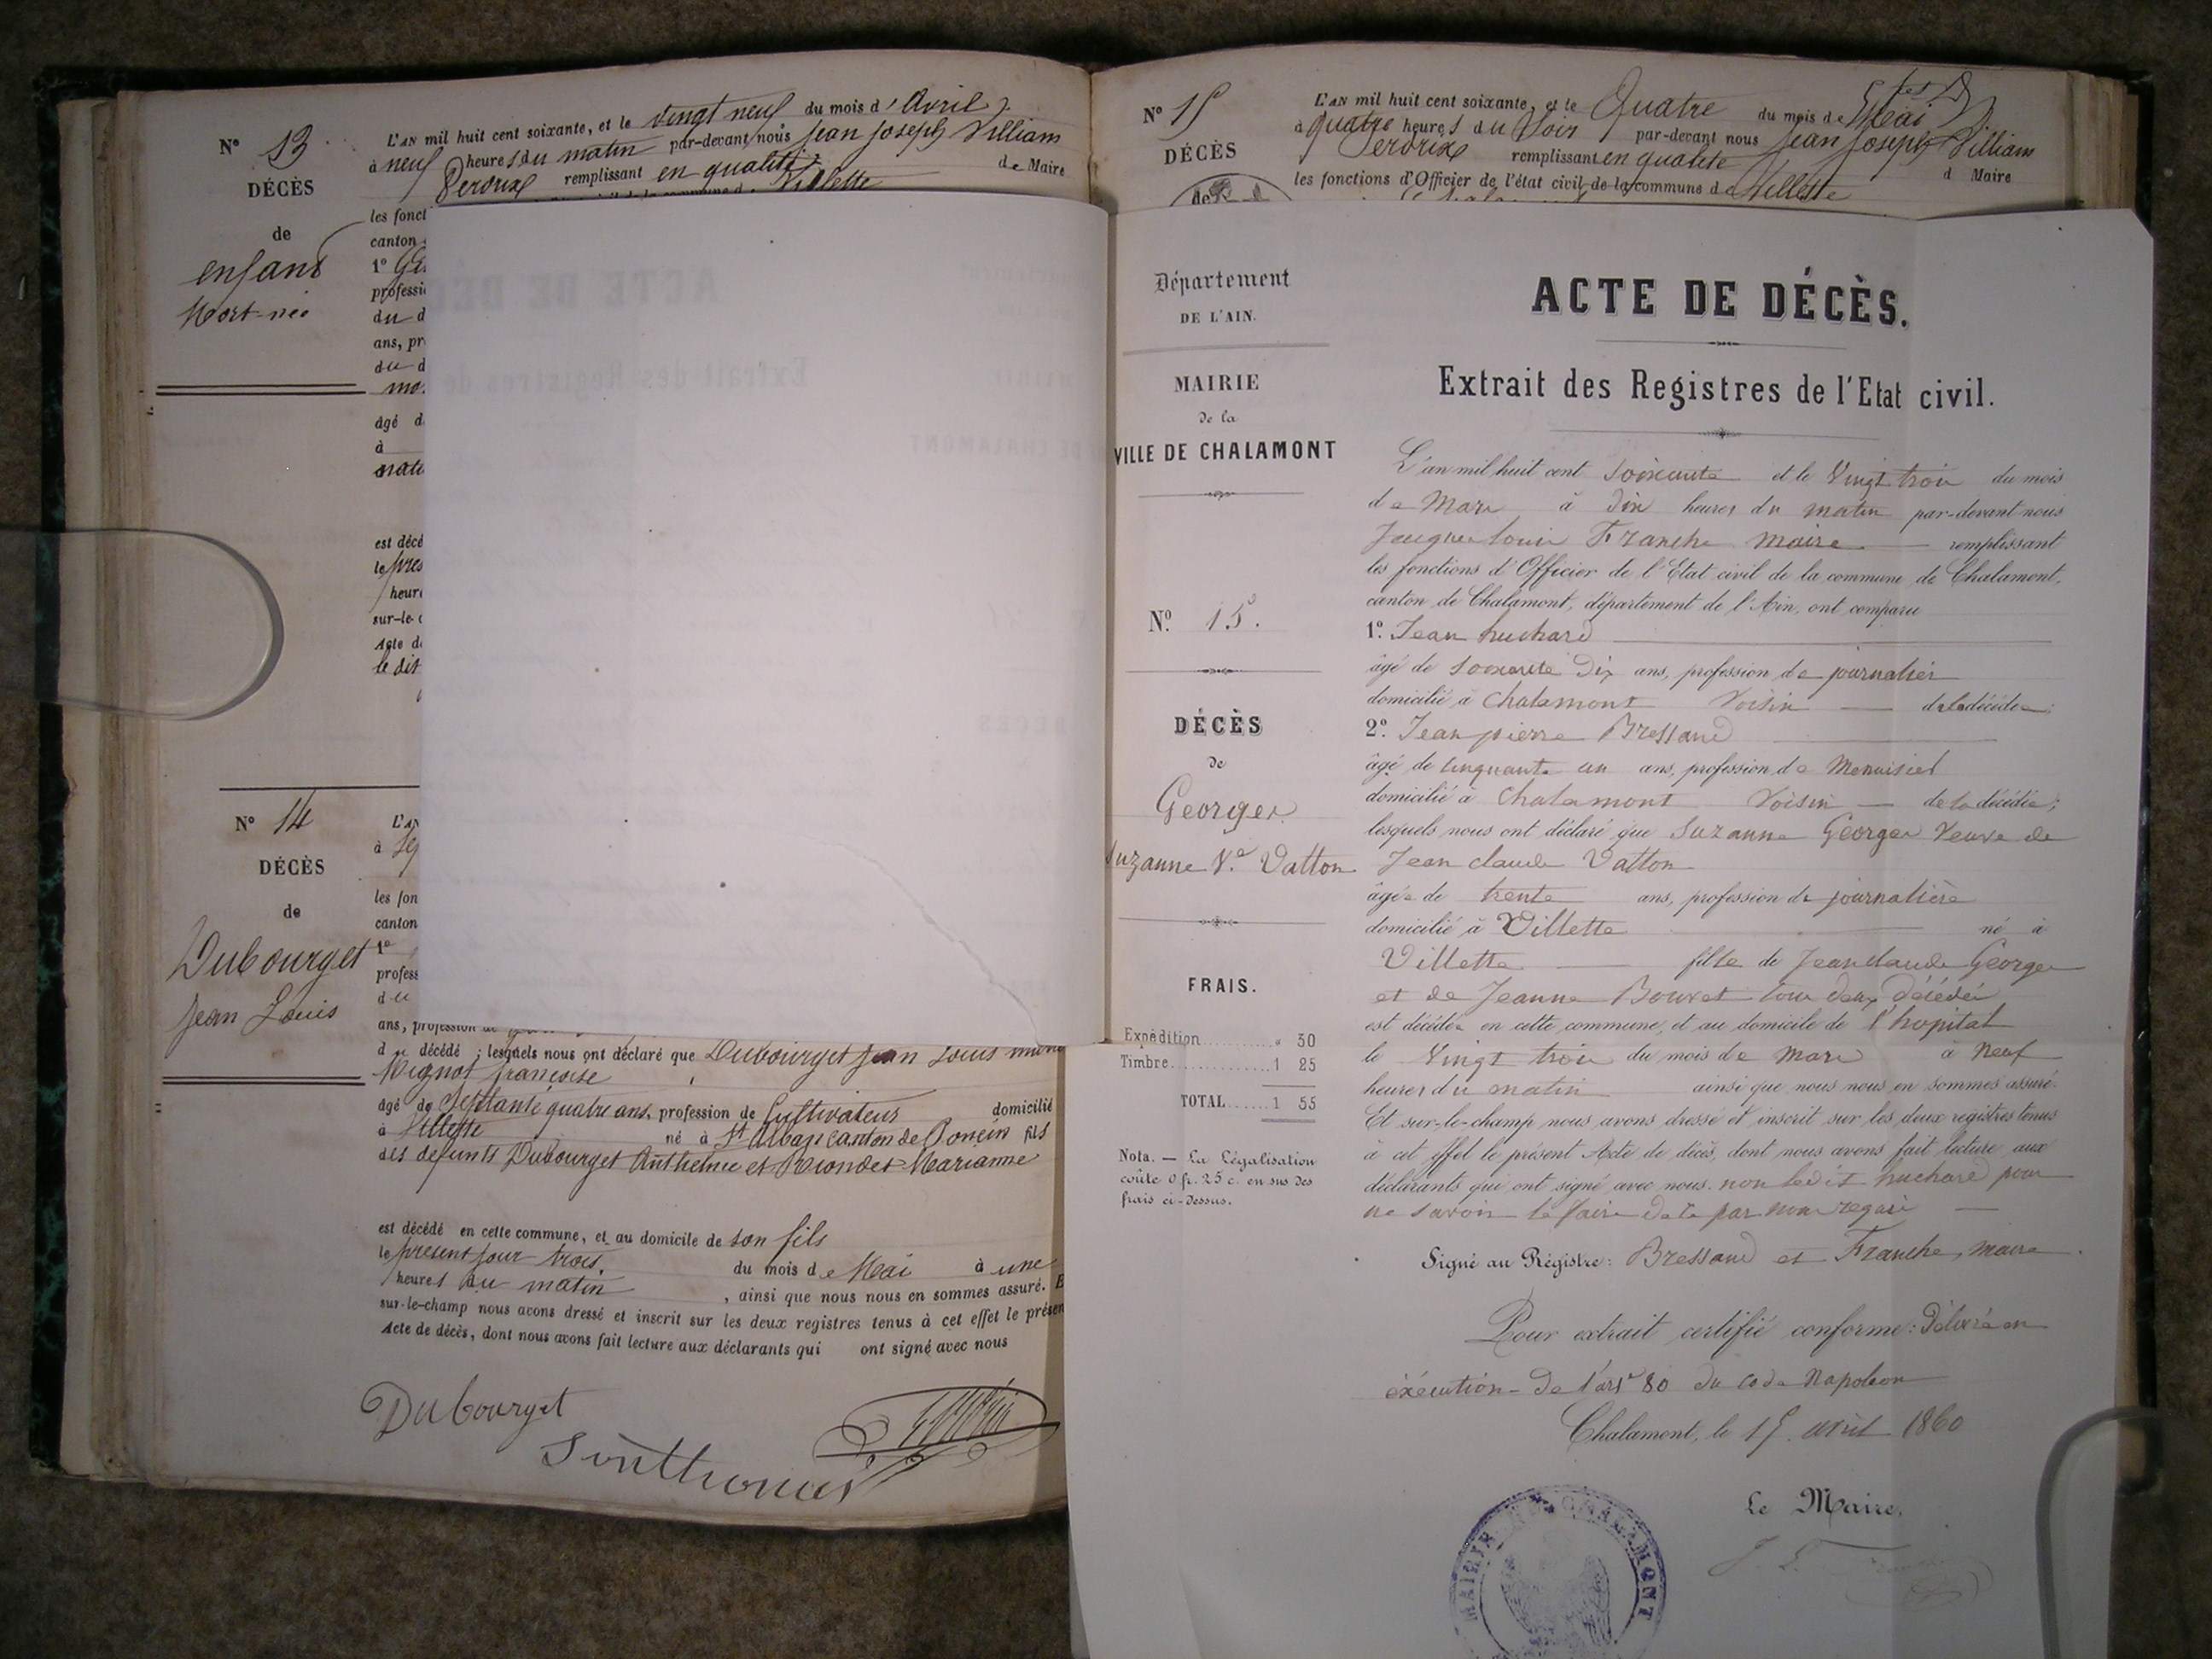 N° 13
DÉCÈS
de
enfant
Mort-née
L'AN mil huit cent soixante, et le vingt neuf du mois d'Avril
à neuf heures du matin par-devant nous Jean Joseph Villiam
Perdrix remplissant en qualité de Maire
Villette
les fonct
canton
1°
professi
du d
ans, pr
du d
mo
âgé d
à
est décé
le pres
heure
sur-le-c
Acte de
le dit
N° 14
DÉCÈS
de
Dubourget
Jean Louis
L'AN
à
les fon
canton
1°
profess
du
ans, profession de
du décédé ; lesquels nous ont déclaré que Dubourget Jean Louis
Mignot françoise
âgé de Septante quatre ans, profession de Cultivateur domicilié
à Villette né à St Alban canton de Poncin fils
des defunts Dubourget Anthelme et Riondet Marianne
est décédé en cette commune, et au domicile de son fils
le present jour trois, du mois de Mai à une
heures du matin, ainsi que nous nous en sommes assuré. E
sur-le-champ nous avons dressé et inscrit sur les deux registres tenus à cet effet le présen
Acte de décès, dont nous avons fait lecture aux déclarants qui ont signé avec nous
Dubourget
N° 15
DÉCÈS
de
L'AN mil huit cent soixante, et le Quatre du mois de Mai
à quatre heures du Soir par-devant nous Jean Joseph Villiam
Perdrix remplissant en qualité d Maire
les fonctions d'Officier de l'état civil de la commune de Villette
Département
DE L'AIN.
MAIRIE
de la
VILLE DE CHALAMONT
N° 15.
DÉCÈS
de
Georges
Suzanne Ve Vatton
FRAIS.
Expédition............ " 30
Timbre............... 1 25
TOTAL...... 1 55
Nota. — La Légalisation
coûte 0 fr. 25 c. en sus des
frais ci-dessus.
ACTE DE DÉCÈS.
Extrait des Registres de l'Etat civil.
L'an mil huit cent soixante et le vingt trois du mois
de Mars à dix heures du matin par-devant nous
Jacques Louis Franche maire remplissant
les fonctions d'Officier de l'Etat civil de la commune de Chalamont,
canton de Chalamont, département de l'Ain, ont comparu
1° Jean huchard
âgé de soixante dix ans, profession de journalier
domicilié à Chalamont Voisin de la décédée;
2° Jean pierre Bressand
âgé de cinquante un ans, profession de Menuisier
domicilié à Chalamont Voisin de la décédée;
lesquels nous ont déclaré que Suzanne Georges Veuve de
Jean claude Vatton
âgée de trente ans, profession de journalière
domicilié à Villette né à
Villette fille de Jean claude Georges
et de Jeanne Bouvet tous deux décédés
est décédée en cette commune, et au domicile de l'hopital
le Vingt trois du mois de Mars à Neuf
heures du matin ainsi que nous nous en sommes assuré.
Et sur-le-champ nous avons dressé et inscrit sur les deux registres tenus
à cet effet le présent Acte de décès, dont nous avons fait lecture aux
déclarants qui ont signé avec nous. non ledit huchard pour
ne savoir le faire de ce par nous requis
Signé au Régistre: Bressand et Franche, maire.
Pour extrait certifié conforme: Délivré en
éxécution de l'art 80 du code Napoléon
Chalamont, le 15 avril 1860
Le Maire,
MAIRIE DE CHALAMONT